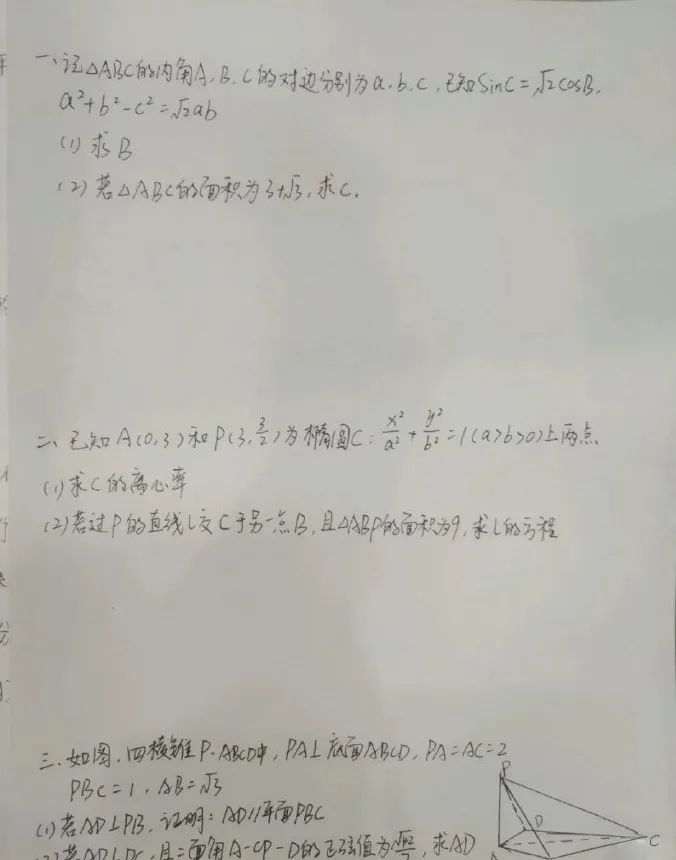 一、记△ABC的内角A、B、C的对边分别为a、b、c，已知sinC=√2cosB，
a²+b²-c²=√2ab
(1) 求B
(2) 若△ABC的面积为3+√3，求C.
二、已知A(0,3)和P(3,3/2)为椭圆C: x²/a²+y²/b²=1(a>b>0)上两点.
(1)求C的离心率
(2)若过P的直线l交C于另一点B，且△ABP的面积为9，求l的方程
三、如图，四棱锥P-ABCD中，PA⊥底面ABCD，PA=AC=2
PBC=1，AB=√3
(1)若AD⊥PB，证明：AD//平面PBC
(2)若AD⊥DC，且二面角A-CP-D的正弦值为√42/7，求AD
P
D
C